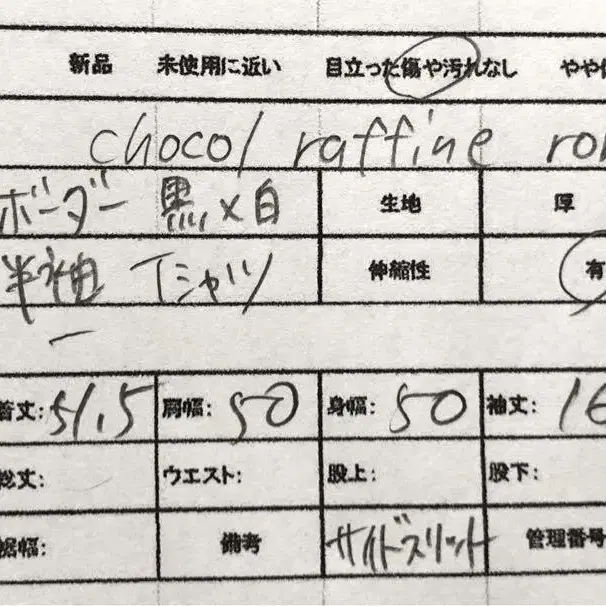 新品 未使用に近い 目立った傷や汚れなし やや
chocol raffine ro
ボーダー 黒×白 生地 厚
半袖 Tシャツ 伸縮性 有
着丈: 51.5 肩幅: 50 身幅: 50 袖丈: 16
総丈: ウエスト: 股上: 股下:
裾幅: 備考 サイドスリット 管理番号